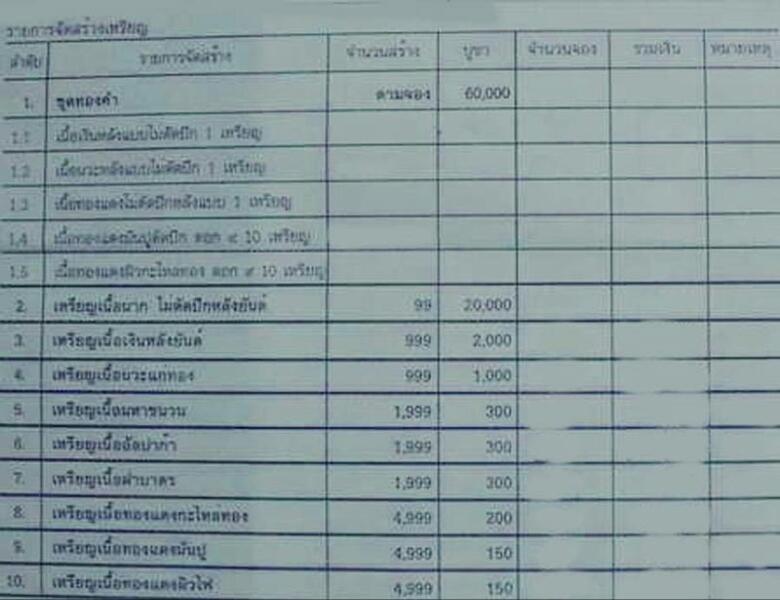 รายการจัดสร้างเหรียญ
ลำดับ รายการจัดสร้าง จำนวนสร้าง บูชา จำนวนจอง รวมเงิน หมายเหตุ
1. ชุดทองคำ ตามจอง 60,000
1.1 เนื้อเงินหลังแบบไม่ตัดปีก 1 เหรียญ
1.2 เนื้อนวะหลังแบบไม่ตัดปีก 1 เหรียญ
1.3 เนื้อทองแดงไม่ตัดปีกหลังแบบ 1 เหรียญ
1.4 เนื้อทองแดงมันปูตัดปีก ตอก ๙ 10 เหรียญ
1.5 เนื้อทองแดงผิวกะไหล่ทอง ตอก ๙ 10 เหรียญ
2. เหรียญเนื้อนาก ไม่ตัดปีกหลังยันต์ 99 20,000
3. เหรียญเนื้อเงินหลังยันต์ 999 2,000
4. เหรียญเนื้อนวะแก่ทอง 999 1,000
5. เหรียญเนื้อมหาชนวน 1,999 300
6. เหรียญเนื้ออัลปาก้า 1,999 300
7. เหรียญเนื้อฝาบาตร 1,999 300
8. เหรียญเนื้อทองแดงกะไหล่ทอง 4,999 200
9. เหรียญเนื้อทองแดงมันปู 4,999 150
10. เหรียญเนื้อทองแดงผิวไฟ 4,999 150